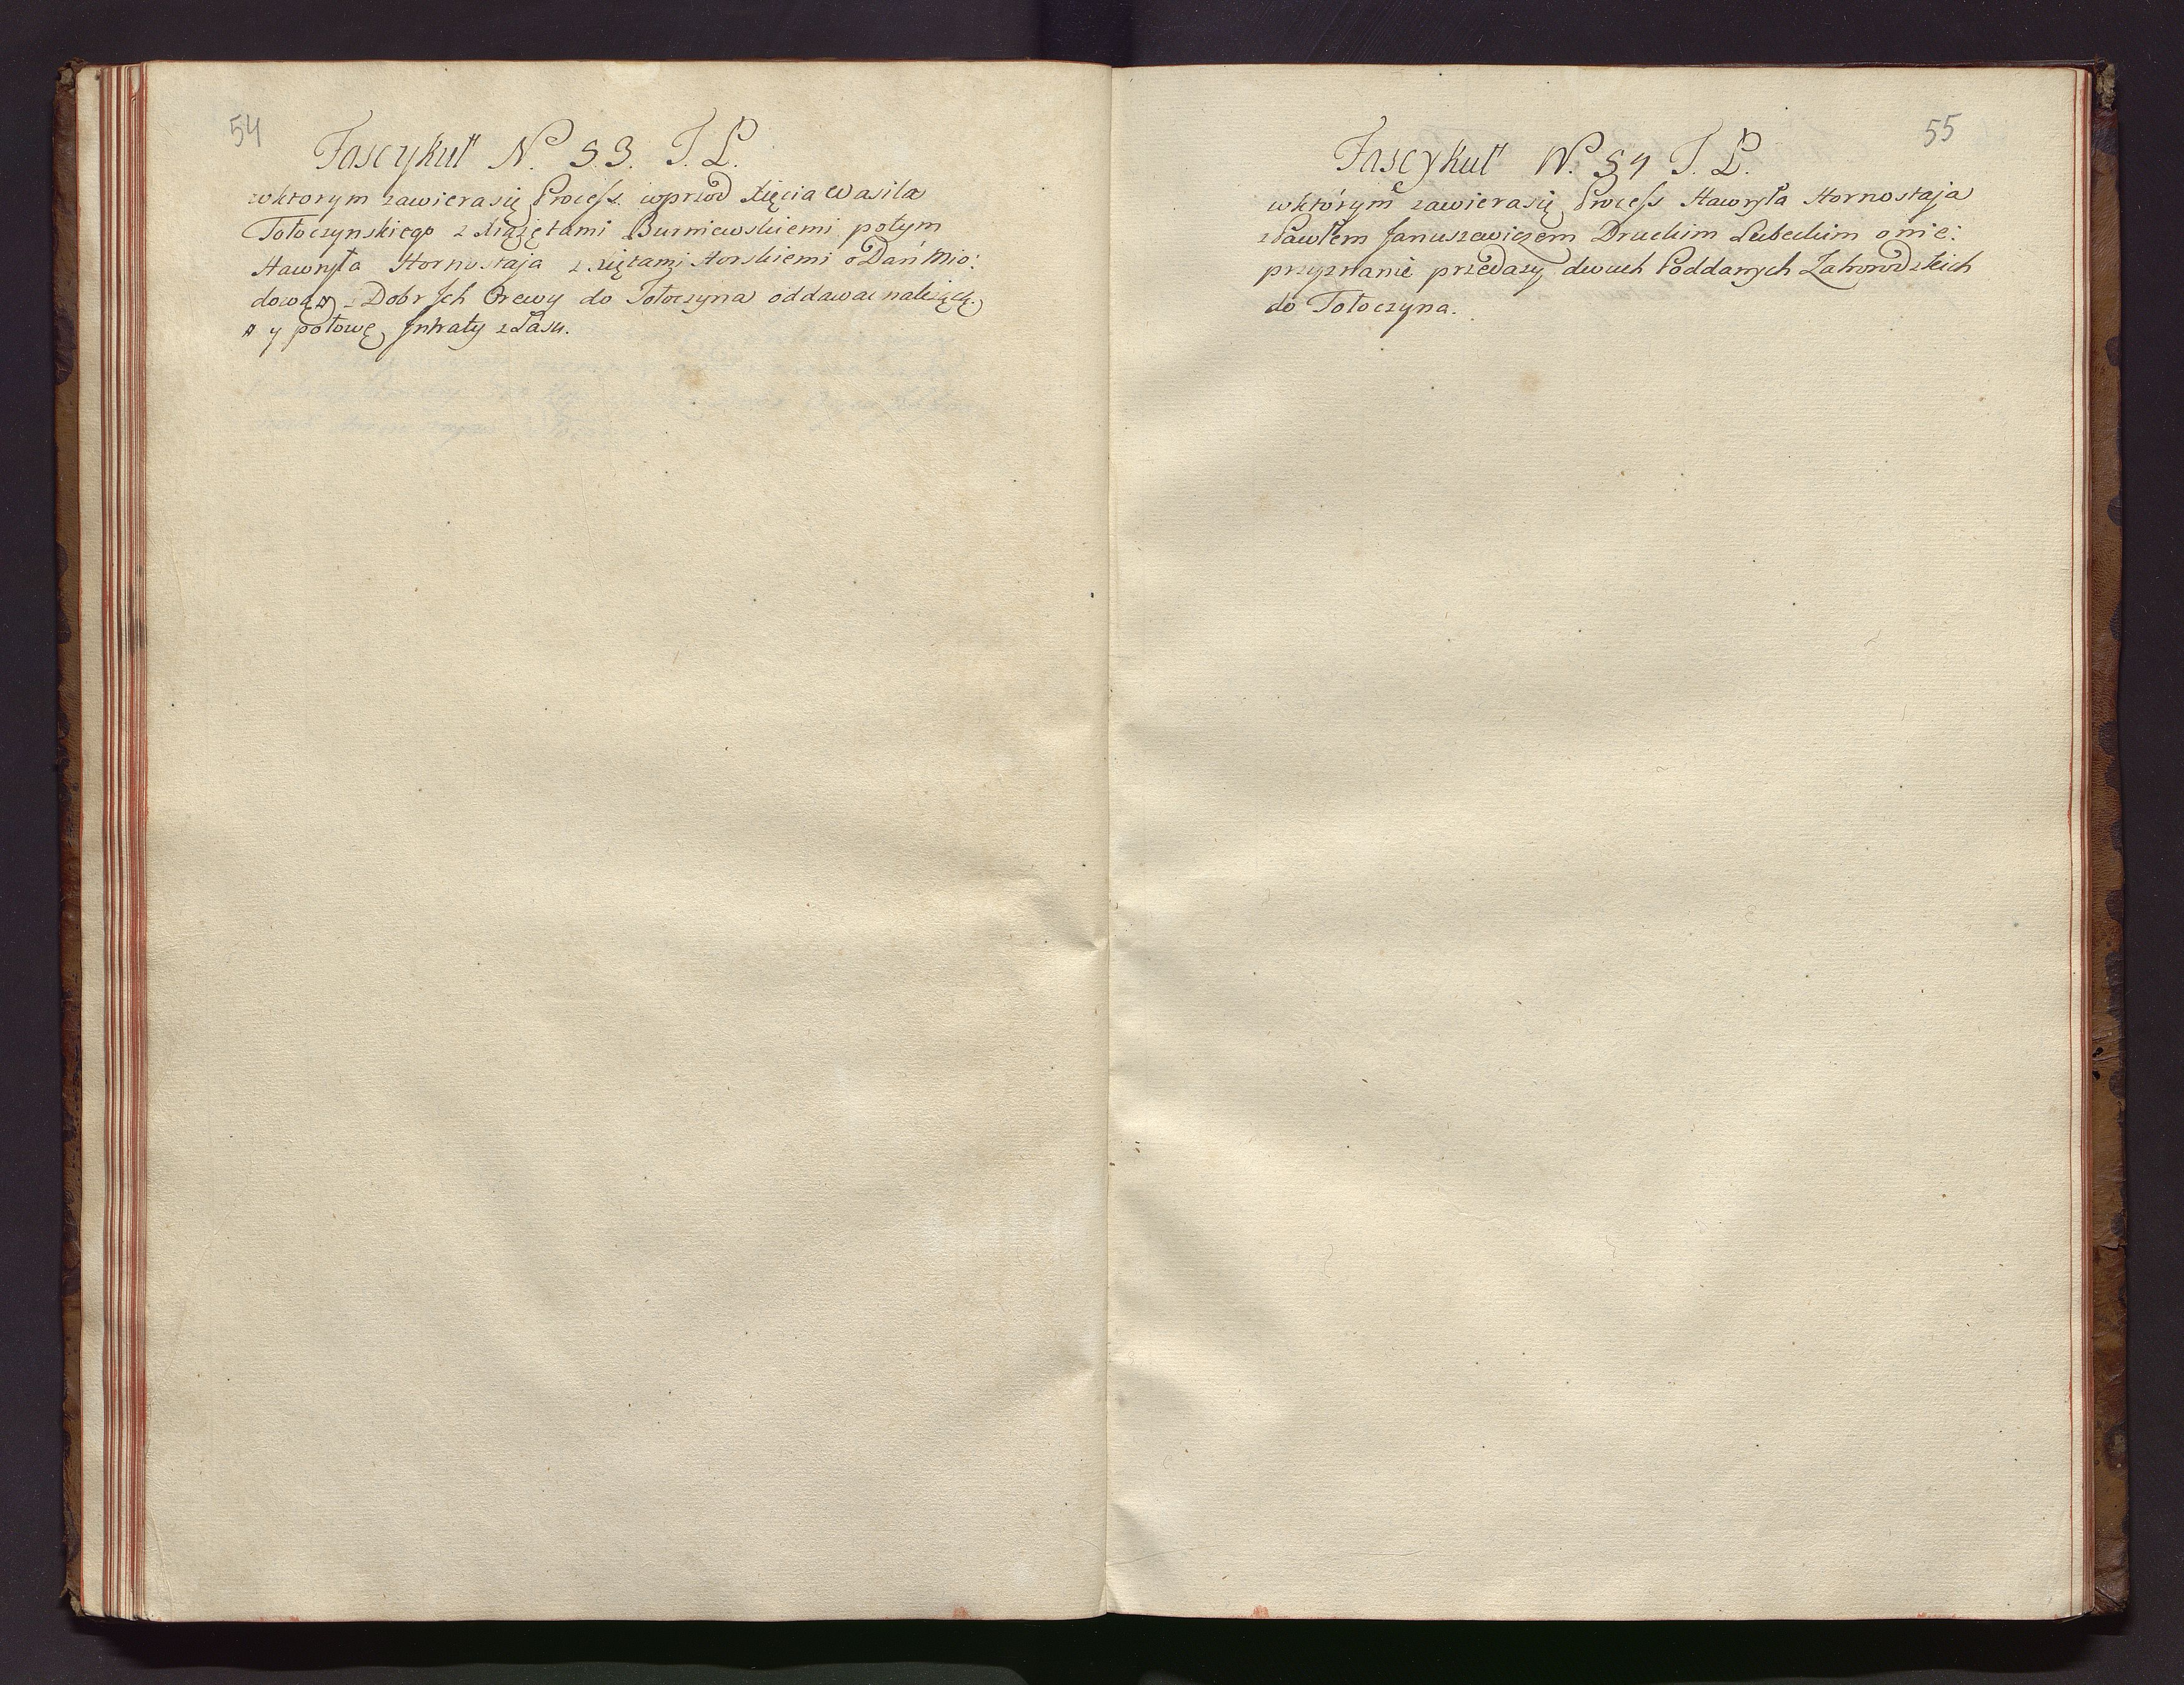 54
Fascykuł N. 53. T. L.
wktorym zawiera się Process wprzod Xięcia Wasila
Tołoczynskiego z Xiążętami Burniewskiemi, potym
Hawryła Hornostaja z Xiętami Horskiemi o Dań Mio:
dową # z Dobr Ich Orewy do Tołoczyna oddawać należącą.
# y połowę Intraty z Lasu.
55
Fascykuł N. 54 T. L.
wktórym zawiera się Process Hawryła Hornostaja
z Pawłem Januszewiczem Druckim Lubeckim o nie:
przyznanie przedaży dwuch Poddanych Zahorodzkich
do Tołoczyna.